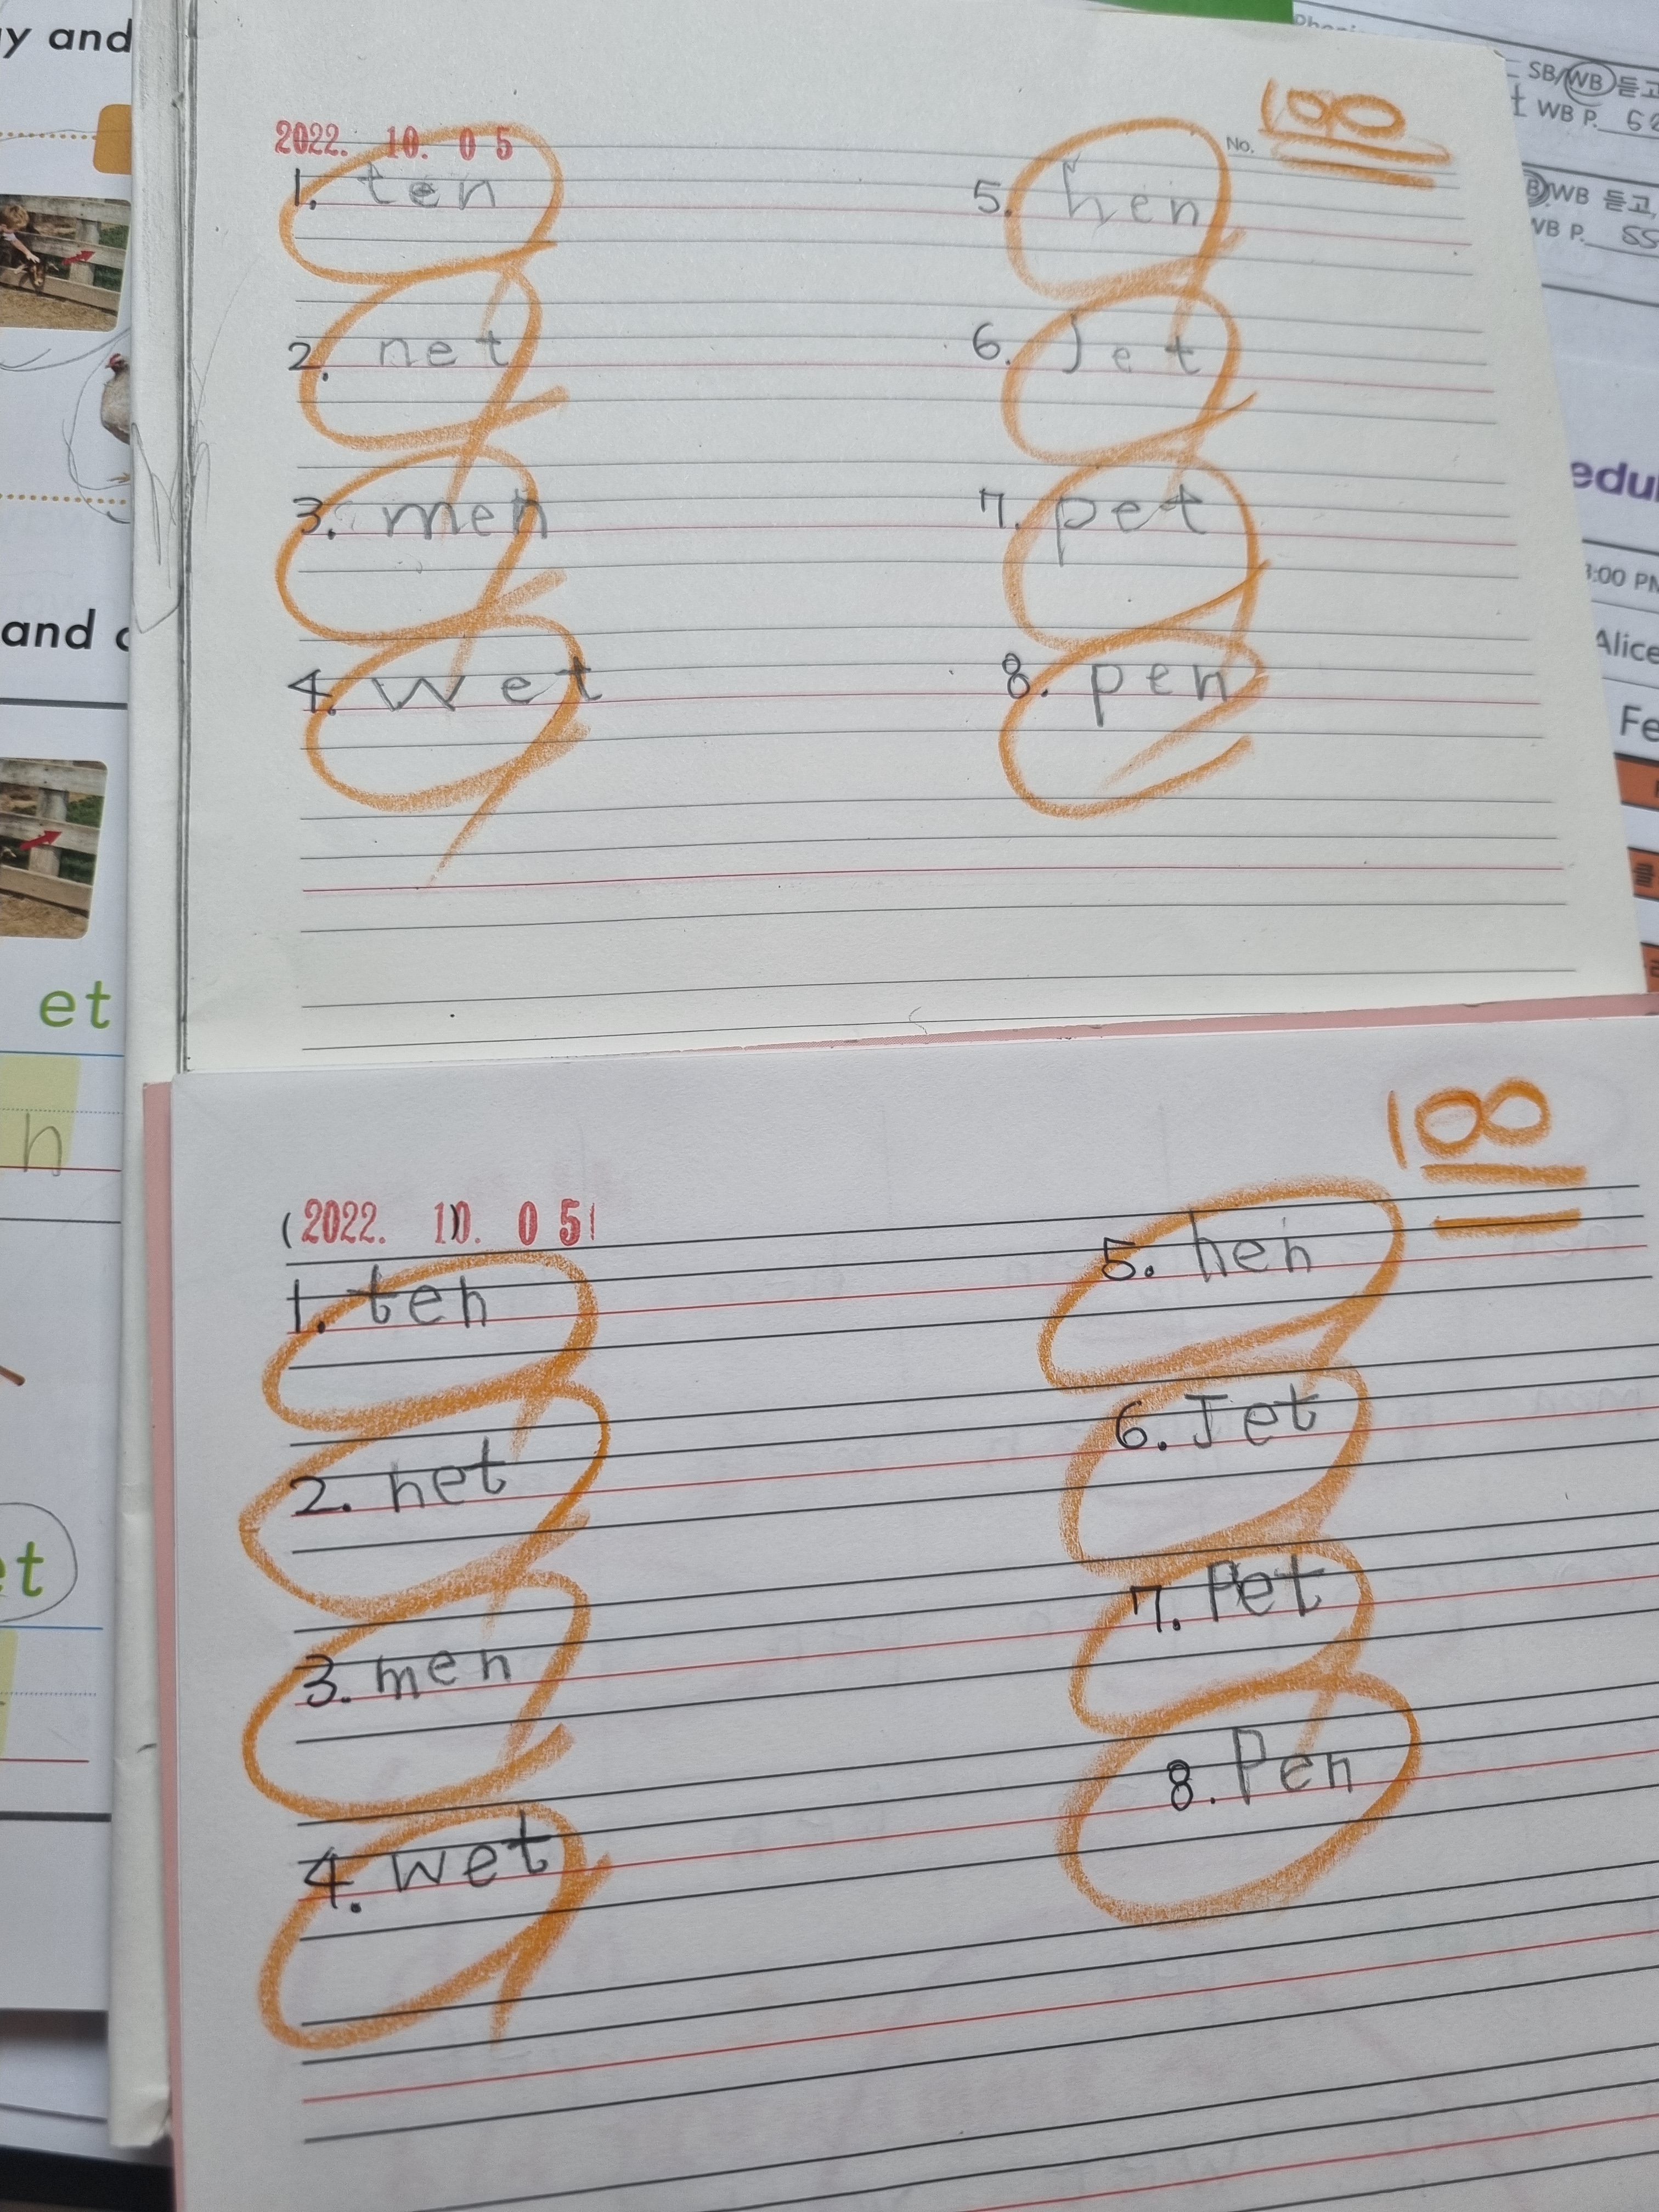 y and
and
et
h
t
2022. 10. 05
100
No.
1. ten
2. net
3. men
4. wet
5. hen
6. Jet
7. pet
8. pen
SB/WB 듣고
WB P. 68
WB 듣고,
WB P. 55
edul
:00 PM
Alice
Fe
(2022. 10. 05
100
1. ten
2. net
3. men
4. wet
5. hen
6. Jet
7. Pet
8. Pen